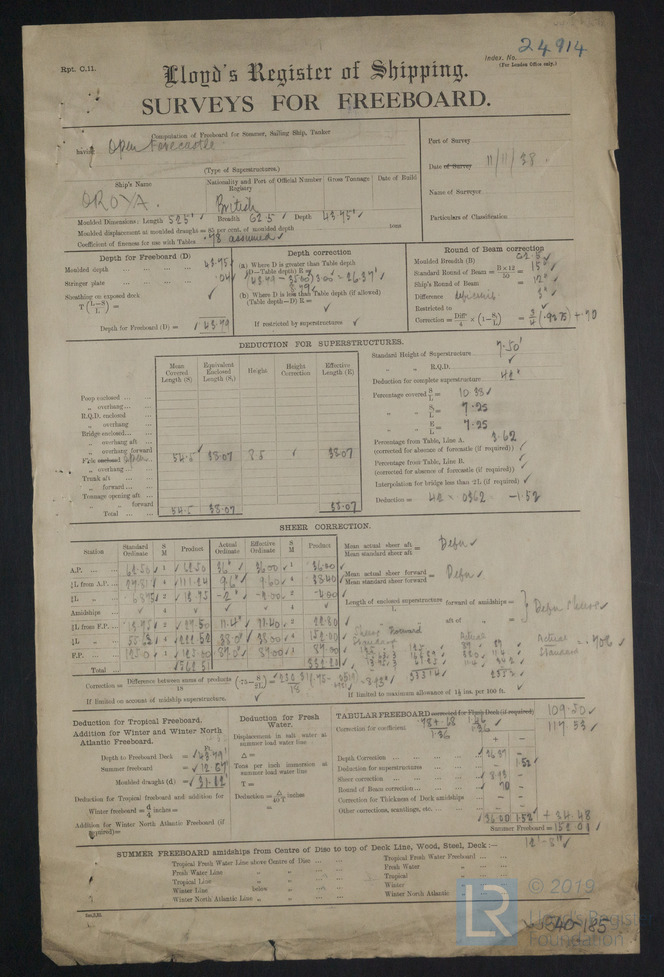 24914
Index. No.
(For London Office only.)
Rpt. C.11.
Lloyd's Register of Shipping.
SURVEYS FOR FREEBOARD.
Computation of Freeboard for Summer, Sailing Ship, Tanker
having Open Forecastle
(Type of Superstructures.)
Port of Survey
Date of Survey 11/11/38.
Name of Surveyor
Particulars of Classification
Ship's Name
Nationality and Port of Registry
Official Number
Gross Tonnage
Date of Build
OROYA.
British
Moulded Dimensions: Length 525' Breadth 62.5 Depth 43.75'
Moulded displacement at moulded draught = 85 per cent. of moulded depth tons
Coefficient of fineness for use with Tables .78 assumed
Depth for Freeboard (D)
Moulded depth 43.75
Stringer plate .04
Sheathing on exposed deck
T (L-S / L) =
Depth for Freeboard (D) = 43.79
Depth correction
(a) Where D is greater than Table depth
(D—Table depth) R =
(b) Where D is less than Table depth (if allowed)
(Table depth—D) R =
If restricted by superstructures
Round of Beam correction
Moulded Breadth (B) 62.5
Standard Round of Beam = B × 12 / 50 = 15"
Ship's Round of Beam = 12"
Difference deficiency 3"
Restricted to
Correction = Diff / 4 × (1 - S1 / L) = 3/4 (.9275) + .70
DEDUCTION FOR SUPERSTRUCTURES.
Mean Covered Length (S)
Equivalent Enclosed Length (S1)
Height
Height Correction
Effective Length (E)
Poop enclosed
„ overhang
R.Q.D. enclosed
„ overhang
Bridge enclosed
„ overhang aft
„ overhang forward
F'cle enclosed open 54.5 38.07 8.5 38.07
„ overhang
Trunk aft
„ forward
Tonnage opening aft
„ „ forward
Total 54.5 38.07 38.07
Standard Height of Superstructure 7.50'
„ „ R.Q.D.
Deduction for complete superstructure 42"
Percentage covered S/L = 10.38
„ „ S1/L = 7.25
„ „ E/L = 7.25
Percentage from Table, Line A. 3.62
(corrected for absence of forecastle (if required))
Percentage from Table, Line B.
(corrected for absence of forecastle (if required))
Interpolation for bridge less than .2L (if required)
Deduction = 42 × .0362 -1.52
SHEER CORRECTION.
Station
Standard Ordinate
S M
Product
Actual Ordinate
Effective Ordinate
S M
Product
A.P. 62.50 1 62.50 36" 36.00 1 36.00
⅙L from A.P. 27.81 4 111.24 9.6" 9.60 4 38.40
⅓L „ 6.875 2 13.75 -2" -2.00 2 -4.00
Amidships
⅓L from F.P. 13.75 2 27.50 11.4" 11.40 2 22.80
⅙L „ 55.63 4 222.50 38.0" 38.00 4 152.00
F.P. 125.0 1 125.00 89.0" 89.00 1 89.00
Total
Mean actual sheer aft / Mean standard sheer aft =
Mean actual sheer forward / Mean standard sheer forward =
Length of enclosed superstructure / L forward of amidships =
„ „ aft of „ =
Sheer Forward
Standard
Actual
Correction = Difference between sums of products / 18 (.75 - S/2L)
If limited on account of midship superstructure.
If limited to maximum allowance of 1½ ins. per 100 ft.
Deduction for Tropical Freeboard.
Addition for Winter and Winter North Atlantic Freeboard.
Depth to Freeboard Deck = 43.79'
Summer freeboard = 12.67'
Moulded draught (d) = 31.12'
Deduction for Tropical freeboard and addition for
Winter freeboard = d/4 inches =
Addition for Winter North Atlantic Freeboard (if required) =
Deduction for Fresh Water.
Displacement in salt water at summer load water line
Δ =
Tons per inch immersion at summer load water line
T =
Deduction = Δ / 40 T inches
=
TABULAR FREEBOARD corrected for Flush Deck (if required) 109.50
Correction for coefficient .78 + .68 / 1.36 117.53
+ -
Depth Correction 26.37
Deduction for superstructures 1.52
Sheer correction 8.93
Round of Beam correction .70
Correction for Thickness of Deck amidships
Other corrections, scantlings, etc.
36.00 1.52 + 34.48
Summer Freeboard = 152.01
12'-8"
SUMMER FREEBOARD amidships from Centre of Disc to top of Deck Line, Wood, Steel, Deck :—
Tropical Fresh Water Line above Centre of Disc
Fresh Water Line „ „
Tropical Line „ „
Winter Line below „
Winter North Atlantic Line „ „
Tropical Fresh Water Freeboard
Fresh Water „
Tropical „
Winter „
Winter North Atlantic „
LR
© 2019
Lloyd's Register
Foundation